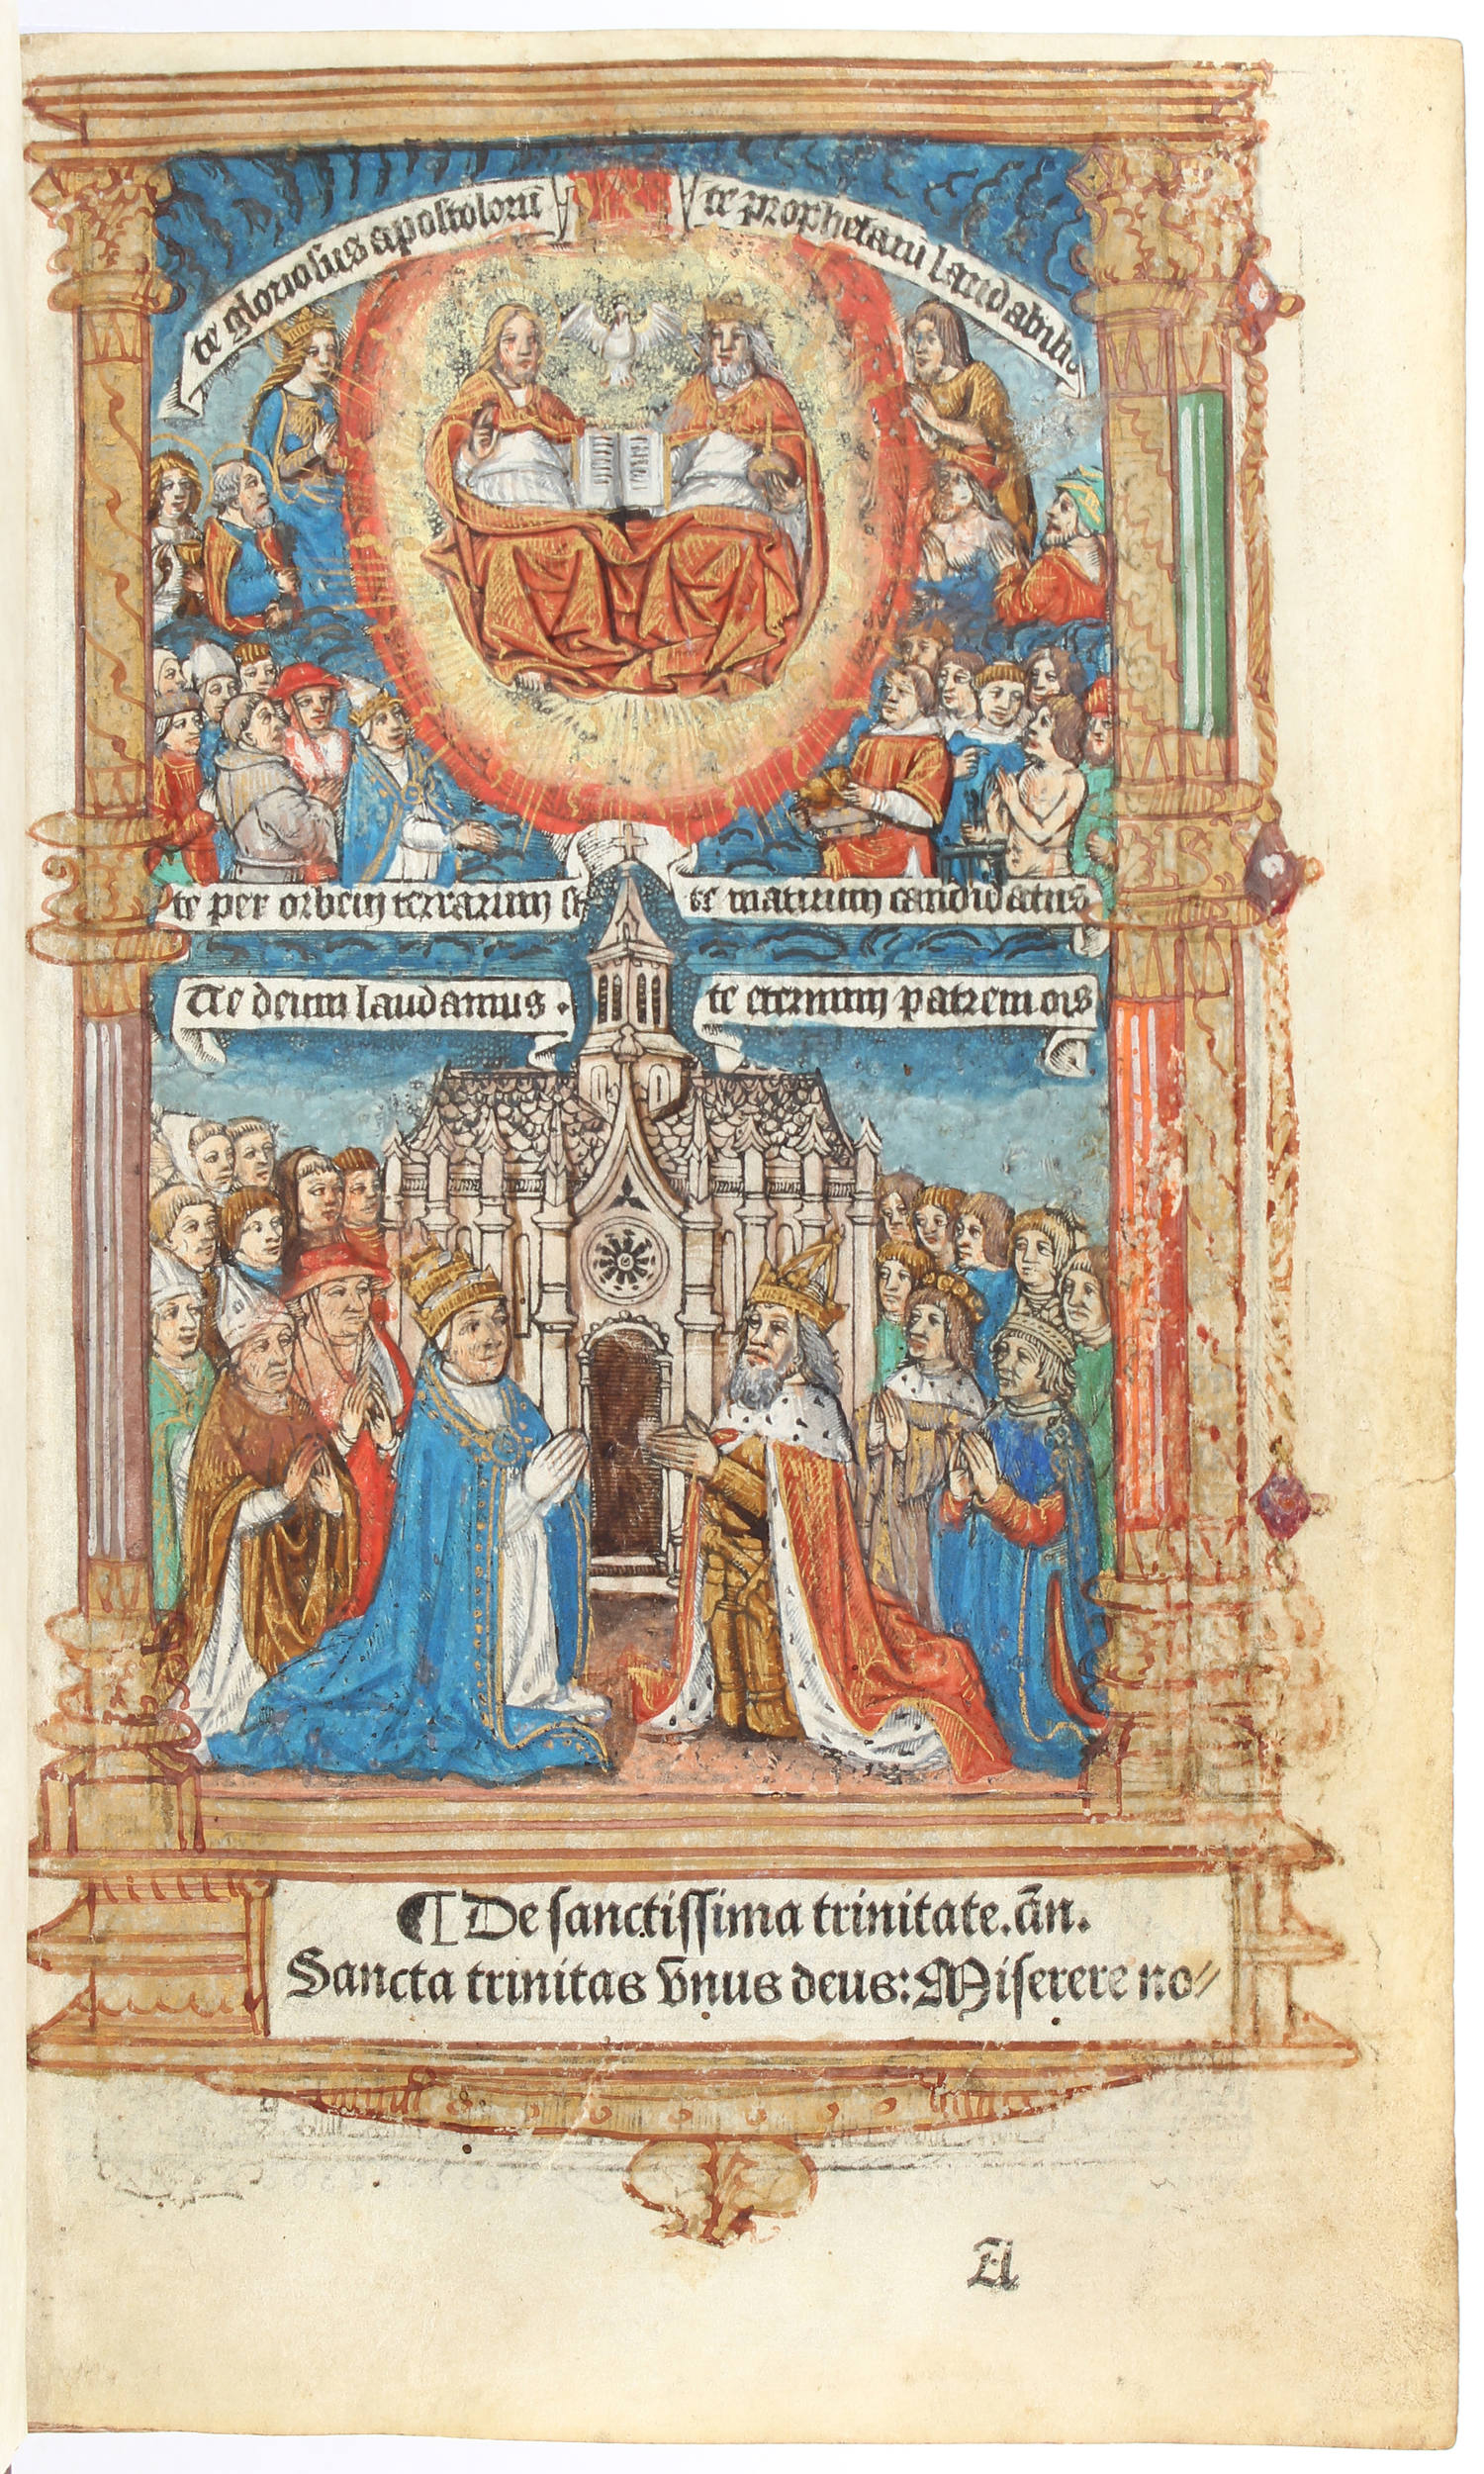 te gloriosus apostolorū
te prophetarū laudabilis
te per orbem terrarum sc
te martirum candidatus
Te deum laudamus.
te eternum patrem oīs
¶ De sanctissima trinitate. añ.
Sancta trinitas vnus deus: Miserere no⸗
A